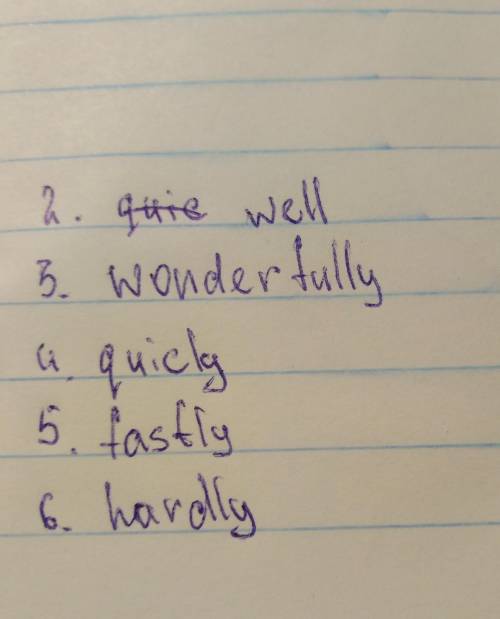 2. quie well
3. wonderfully
4. quicly
5. fastly
6. hardly